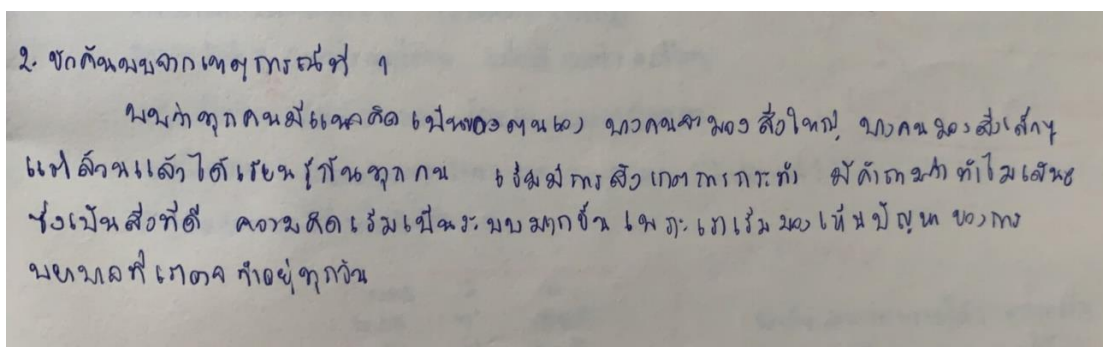 2. ข้อค้นพบจากเหตุการณ์ที่ 1
พบว่าทุกคนมีแนวคิดเป็นของตนเอง บางคนจะมองสิ่งใหญ่ๆ บางคนมองสิ่งเล็กๆ
แต่ล้วนแล้วได้เรียนรู้กันทุกคน เริ่มมีการสังเกตการกระทำ มีคำถามว่าทำไม
ซึ่งเป็นสิ่งที่ดี ความคิดเริ่มเป็นระบบมากขึ้น เพราะเราเริ่มมองเห็นปัญหาของการ
พยาบาลที่เราอาจทำอยู่ทุกวัน